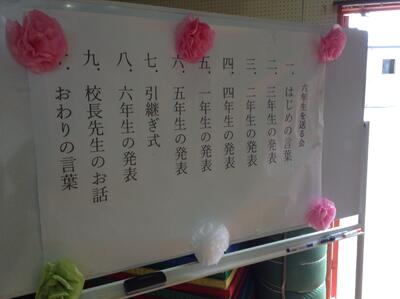 六年生を送る会
一．はじめの言葉
二．三年生の発表
三．二年生の発表
四．四年生の発表
五．一年生の発表
六．五年生の発表
七．引継ぎ式
八．六年生の発表
九．校長先生のお話
十．おわりの言葉